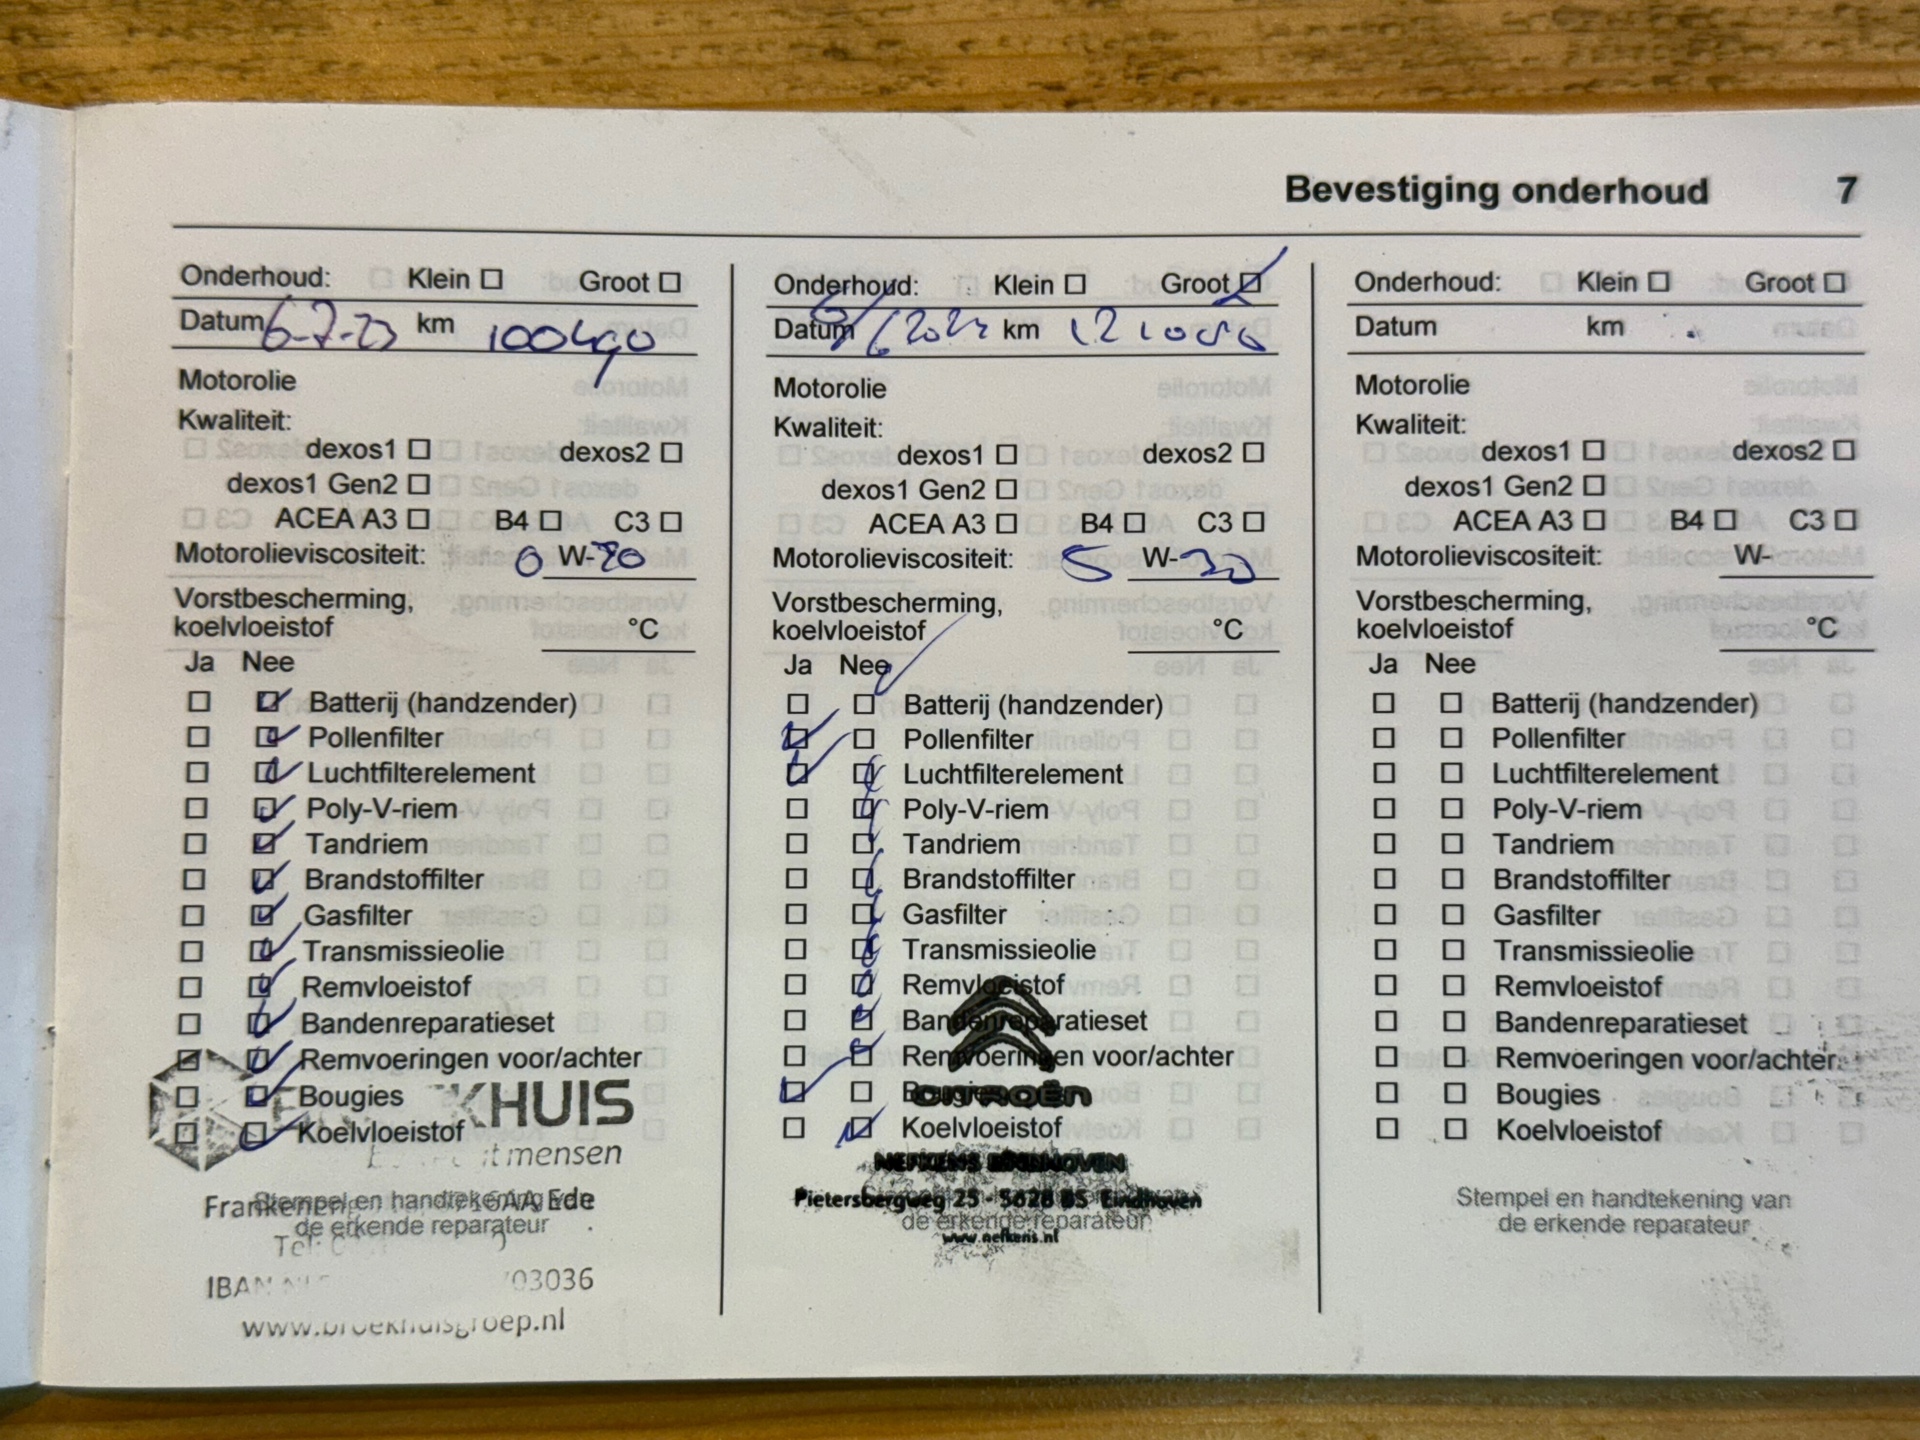 Bevestiging onderhoud 7
Onderhoud: Klein Groot
Datum 6-7-23 km 100490
Motorolie
Kwaliteit:
dexos1 dexos2
dexos1 Gen2
ACEA A3 B4 C3
Motorolieviscositeit: 0 W-20
Vorstbescherming,
koelvloeistof °C
Ja Nee
Batterij (handzender)
Pollenfilter
Luchtfilterelement
Poly-V-riem
Tandriem
Brandstoffilter
Gasfilter
Transmissieolie
Remvloeistof
Bandenreparatieset
Remvoeringen voor/achter
Bougies
KHUIS
Koelvloeistof
mensen
Stempel en handtekening van
AA Ede
de erkende reparateur
Tel:
IBAN 03036
www.broekhuisgroep.nl
Onderhoud: Klein Groot
Datum km
Motorolie
Kwaliteit:
dexos1 dexos2
dexos1 Gen2
ACEA A3 B4 C3
Motorolieviscositeit: 5 W-30
Vorstbescherming,
koelvloeistof °C
Ja Nee
Batterij (handzender)
Pollenfilter
Luchtfilterelement
Poly-V-riem
Tandriem
Brandstoffilter
Gasfilter
Transmissieolie
Remvloeistof
Bandenreparatieset
Remvoeringen voor/achter
Bougies
CITROËN
Koelvloeistof
NEFKENS EINDHOVEN
Pietersbergweg 25 - 5628 BS Eindhoven
de erkende reparateur
www.nefkens.nl
Onderhoud: Klein Groot
Datum km
Motorolie
Kwaliteit:
dexos1 dexos2
dexos1 Gen2
ACEA A3 B4 C3
Motorolieviscositeit: W-
Vorstbescherming,
koelvloeistof °C
Ja Nee
Batterij (handzender)
Pollenfilter
Luchtfilterelement
Poly-V-riem
Tandriem
Brandstoffilter
Gasfilter
Transmissieolie
Remvloeistof
Bandenreparatieset
Remvoeringen voor/achter
Bougies
Koelvloeistof
Stempel en handtekening van
de erkende reparateur